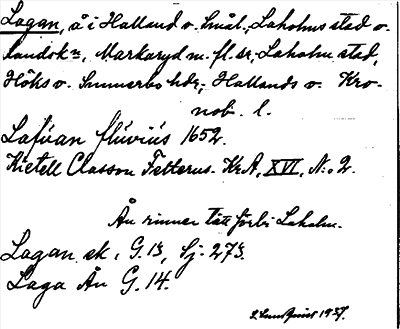 Lagan, å i Halland o. Smål., Laholms stad o.
landsk:n, Markaryd m. fl. sr, Laholm stad,
Höks o. Sunnerbo hdr, Hallands o. Kro-
nob. l.
Lafvan flúviús 1652.
Kietell Classon Felterus. KrA, XVI, N:o 2.
Ån rinner tätt förbi Laholm.
Lagan sk. G. 13, Sj. 273.
Laga Ån G. 14.
1937.